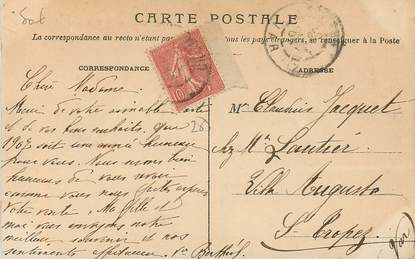 CARTE POSTALE
La correspondance au recto n'étant pas
tous les pays étrangers, se renseigner à la Poste
CORRESPONDANCE
ADRESSE
Chère Madame.
Merci de votre aimable carte
et de vos bons souhaits. Que
1905 ont une année heureuse
pour vous. Nous avons bien
heureux de vous avoir
comme vous nous
votre visite. Ma fille et
moi vous envoyons notre
meilleur souvenir et nos
sentiments
10
200
Mr Claudius Jacquet
chez Mr Lautier
Villa Augusta
St Tropez
Var